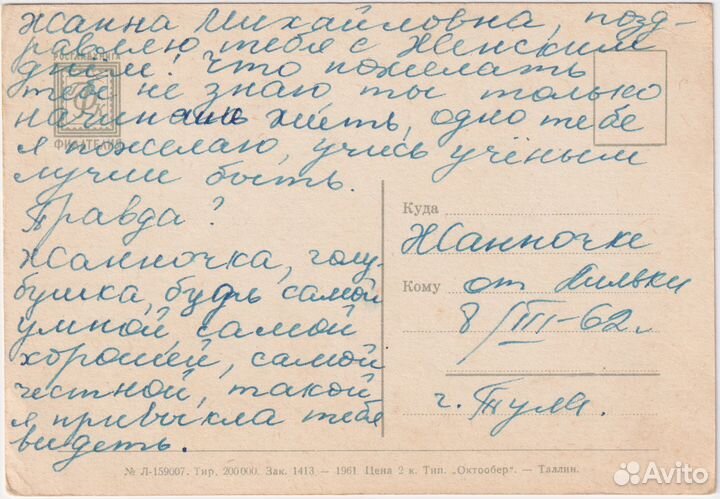 Жанна Михайловна, позд-
равляю тебя с Женским
днём! Что пожелать
тебе не знаю ты только
начинаешь жить, одно тебе
я пожелаю, учись учёным
лучше быть.
Правда?
Жанночка, голу-
бушка, будь самой
умной, самой
хорошей, самой
честной, такой
я привыкла тебя
видеть.
РОСГЛАВКНИГА
ФИЛАТЕЛИЯ
Куда
Жанночке
Кому от Лильки
8/III-62г.
г. Тула.
№ Л-159007. Тир. 200000. Зак. 1413 — 1961. Цена 2 к. Тип. „Октообер". — Таллин.
Avito